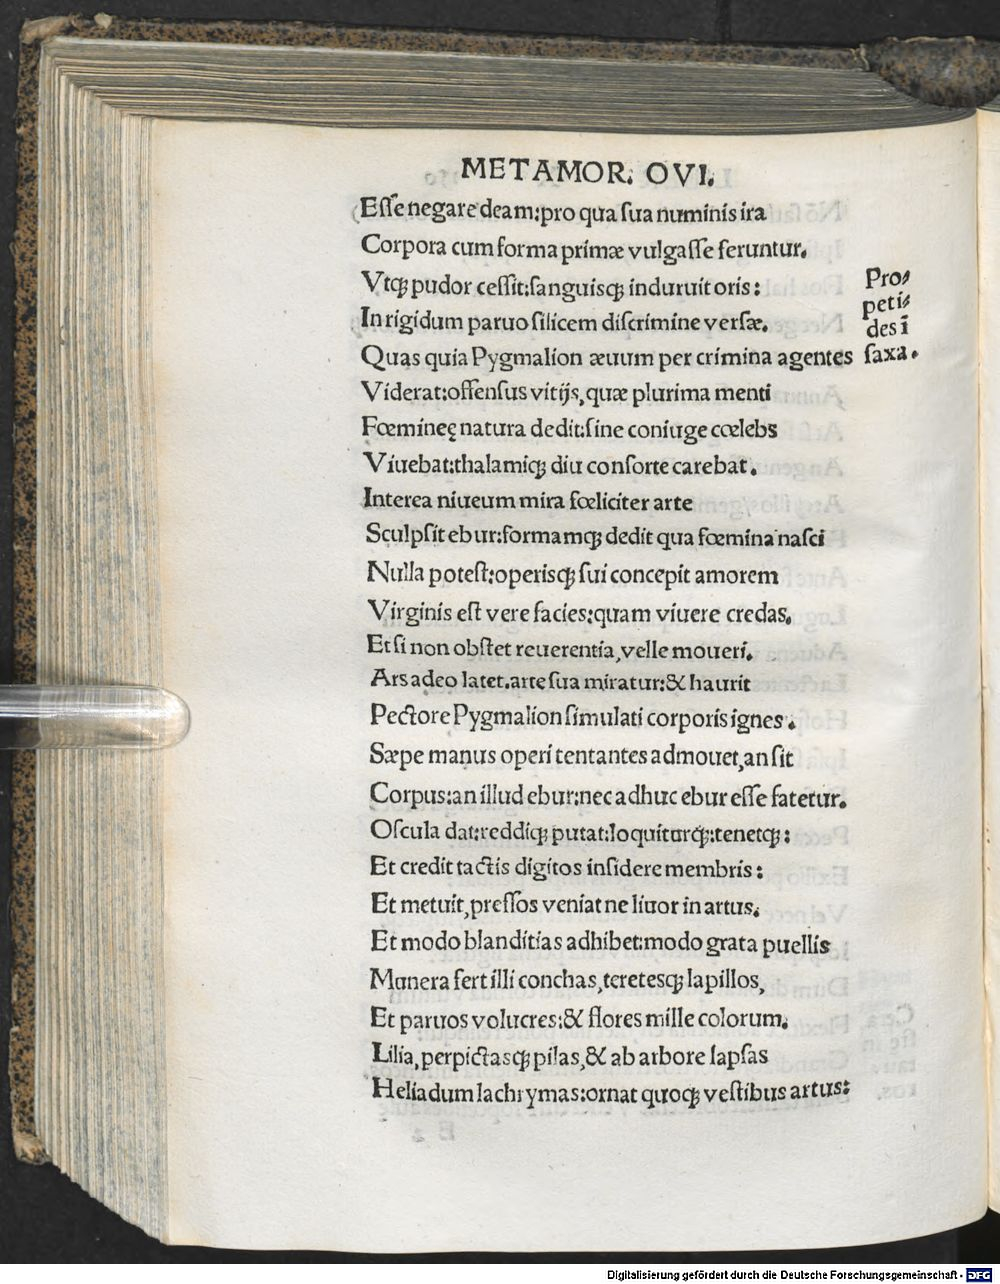 METAMOR. OVI.
Esse negare deam:pro qua sua numinis ira
Corpora cum forma primæ vulgasse feruntur.
Vtq; pudor cessit:sanguisq; induruit oris:
In rigidum paruo silicem discrimine versæ.
Quas quia Pygmalion æuum per crimina agentes
Viderat:offensus vitijs,quæ plurima menti
Fœmineę natura dedit:sine coniuge cœlebs
Viuebat:thalamiq; diu consorte carebat.
Interea niueum mira fœliciter arte
Sculpsit ebur:formamq; dedit qua fœmina nasci
Nulla potest:operisq; sui concepit amorem
Virginis est vere facies:quam viuere credas.
Et si non obstet reuerentia,velle moueri.
Ars adeo latet.arte sua miratur:& haurit
Pectore Pygmalion simulati corporis ignes.
Sæpe manus operi tentantes admouet,an sit
Corpus:an illud ebur:nec adhuc ebur esse fatetur.
Oscula dat:reddiq; putat:loquiturq;:tenetq;:
Et credit tactis digitos insidere membris:
Et metuit,pressos veniat ne liuor in artus.
Et modo blanditias adhibet:modo grata puellis
Munera fert illi conchas,teretesq; lapillos,
Et paruos volucres:& flores mille colorum.
Lilia,perpictasq; pilas,& ab arbore lapsas
Heliadum lachrymas:ornat quoq; vestibus artus:
Pro/
peti/
des ī
saxa.
Digitalisierung gefördert durch die Deutsche Forschungsgemeinschaft - DFG